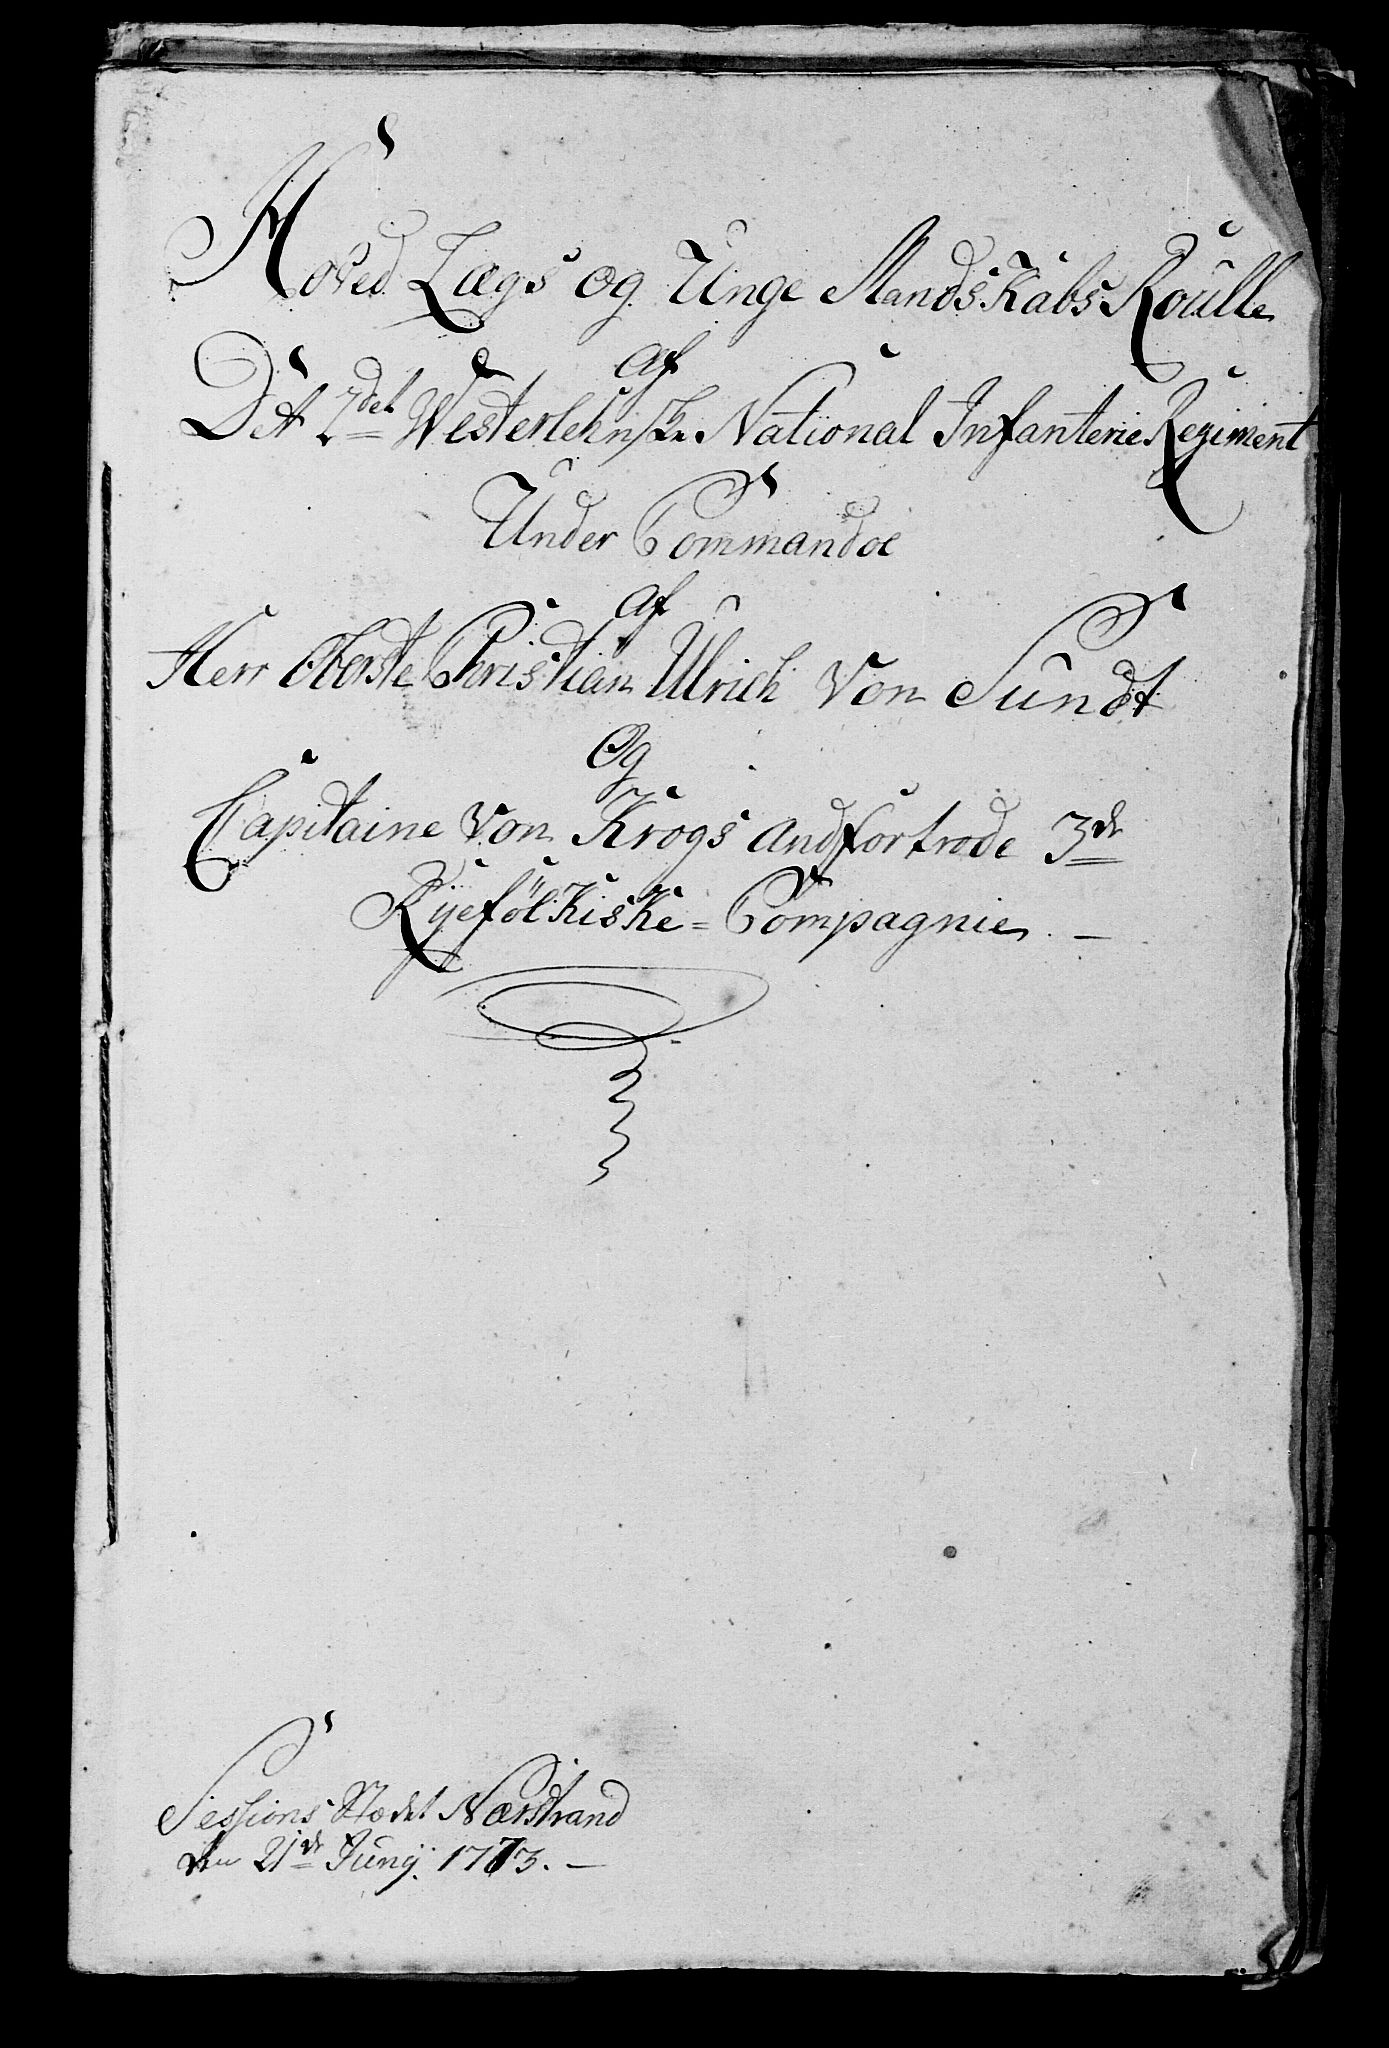 Hoved Lægs og Unge Mandskabs Roulle
Af
Det 2det Westerlehnske National Infanterie Regiment
Under Commandoe
Af
Herr Oberste Christian Ulrich von Sundt
Og
Capitaine von Krogs andfortrode 3de
Ryefölkiske = Compagnie. —
Sessions Stædet Nærstrand
den 21de Junÿ. 1773. —